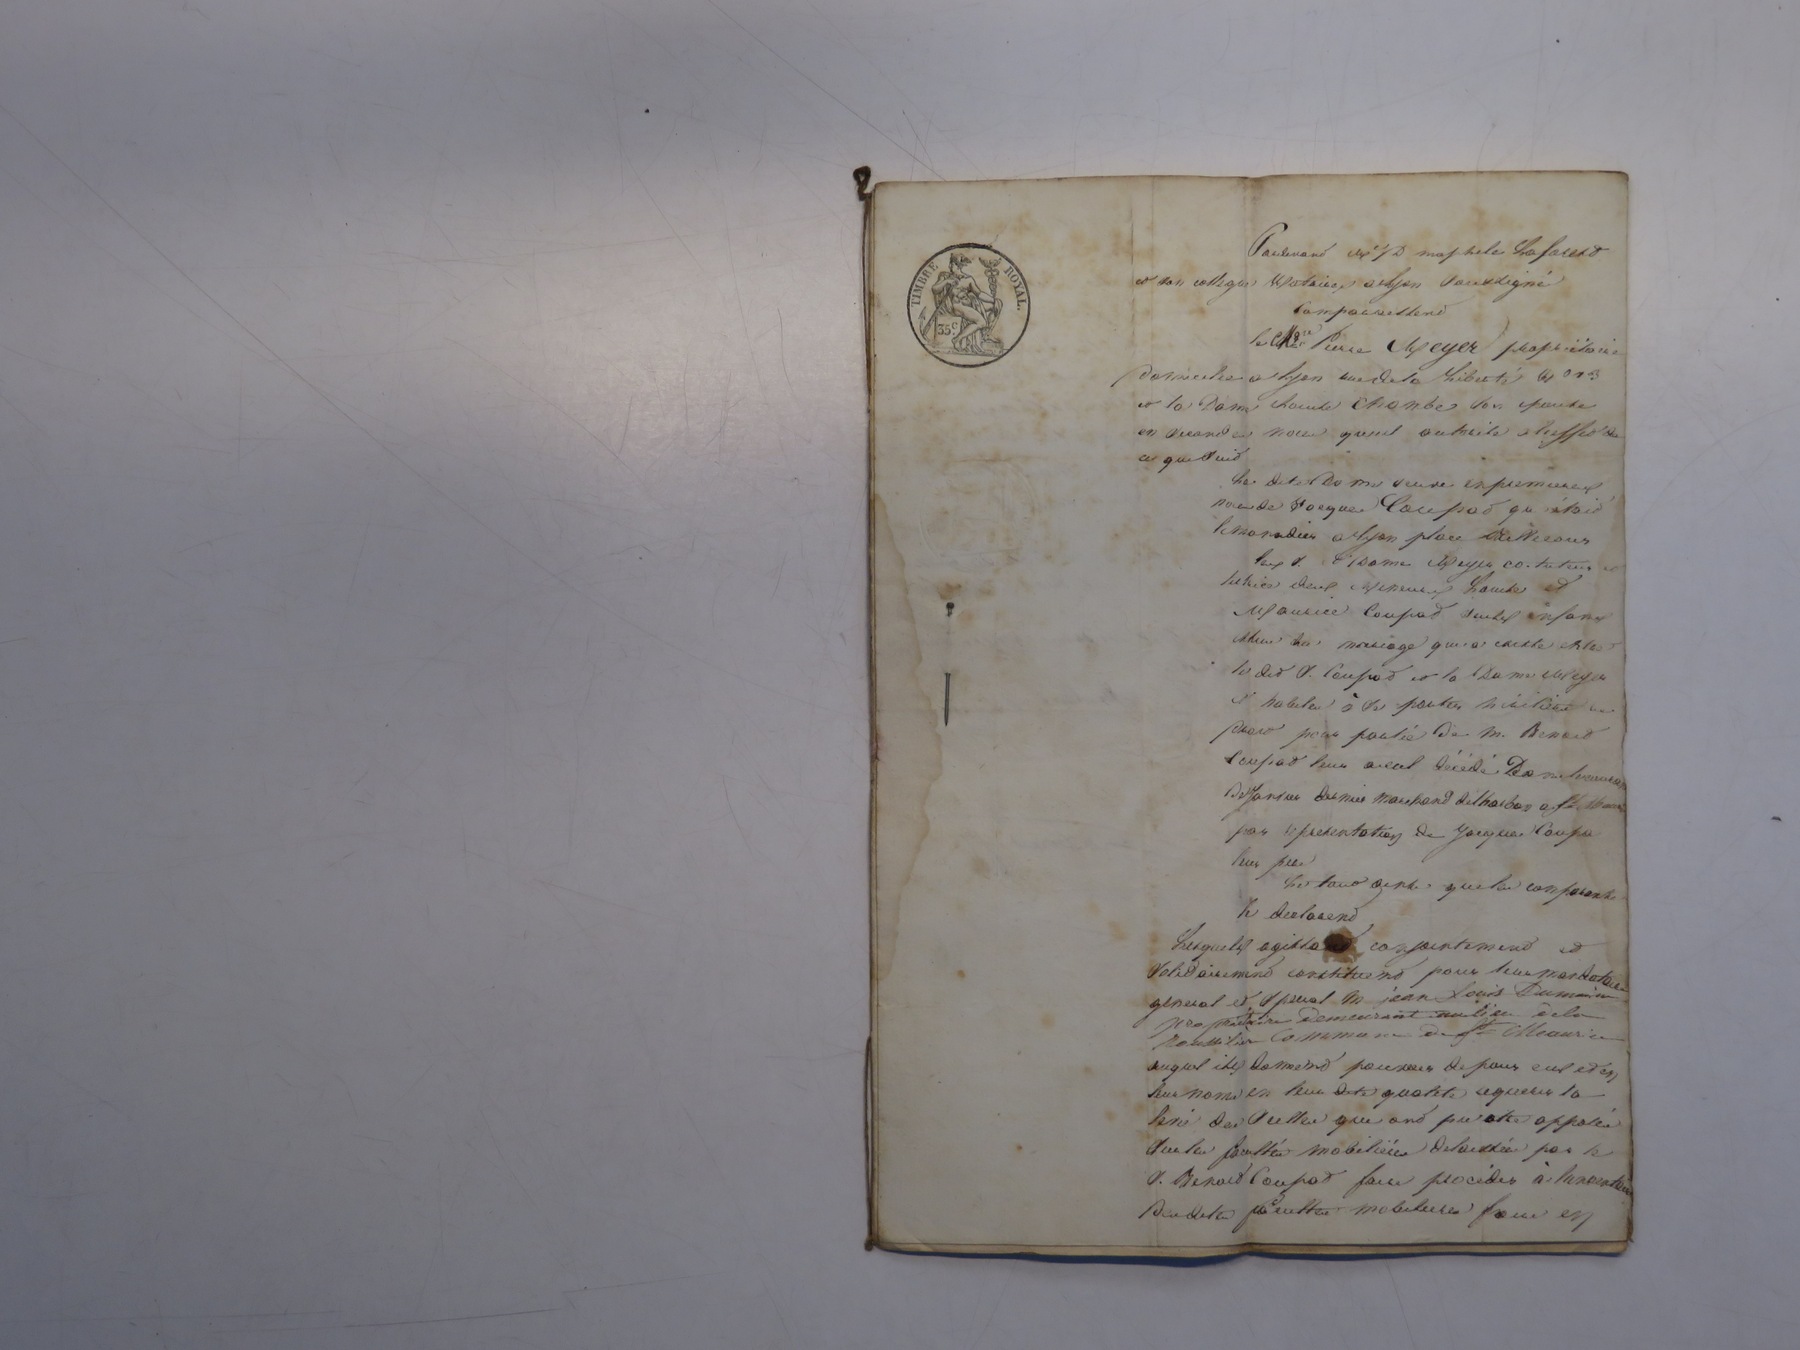 TIMBRE ROYAL.
35 c
Pardevant
et son collègue Notaires a Lyon soussigné
Comparaissent
le Pierre Meyer propriétaire
Domicilié a Lyon rue de la Liberté
et la Dame Chanbe son épouse
en secondes noces quil autorise a leffet de
ce qui suit
la dite Dame veuve en premieres
noces de Jacques Coupat qui étoit
limonadier a Lyon place Bellecour
Dame Meyer co-tuteur
tutrice des mineurs et
Maurice Coupat seuls enfans
mariage qui a existé entre
le dit S. Coupat et la Dame Meyer
habiles à se porter héritiers
pour partie de m. Benoit
Coupat leur aieul décédé
Janvier dernier marchand de charbon a St
par représentation de Jacques Coupa
leur pere
Le tout que les comparants
le declarent
Lesquels agissant conjointement et
solidairement constituent pour leur mandataire
general et special m jean Louis Dumain
propriétaire demeurant au lieu de la
commune de St Maurice
auquel ils donnent pouvoir de pour eux et en
leur nom en leur dite qualité requerir la
levé des scellés que ont pu etre apposés
sur les facultés mobilières delaissées par le
S. Benoit Coupat faire procéder à linventaire
desdites facultés mobilieres faire en